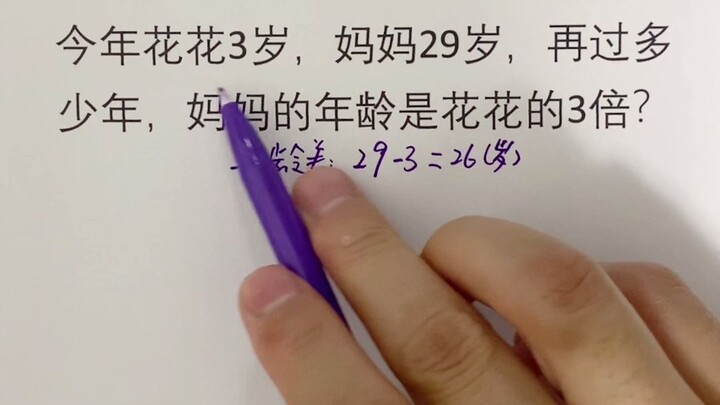 今年花花3岁，妈妈29岁，再过多
少年，妈妈的年龄是花花的3倍？
龄差：29-3=26(岁)